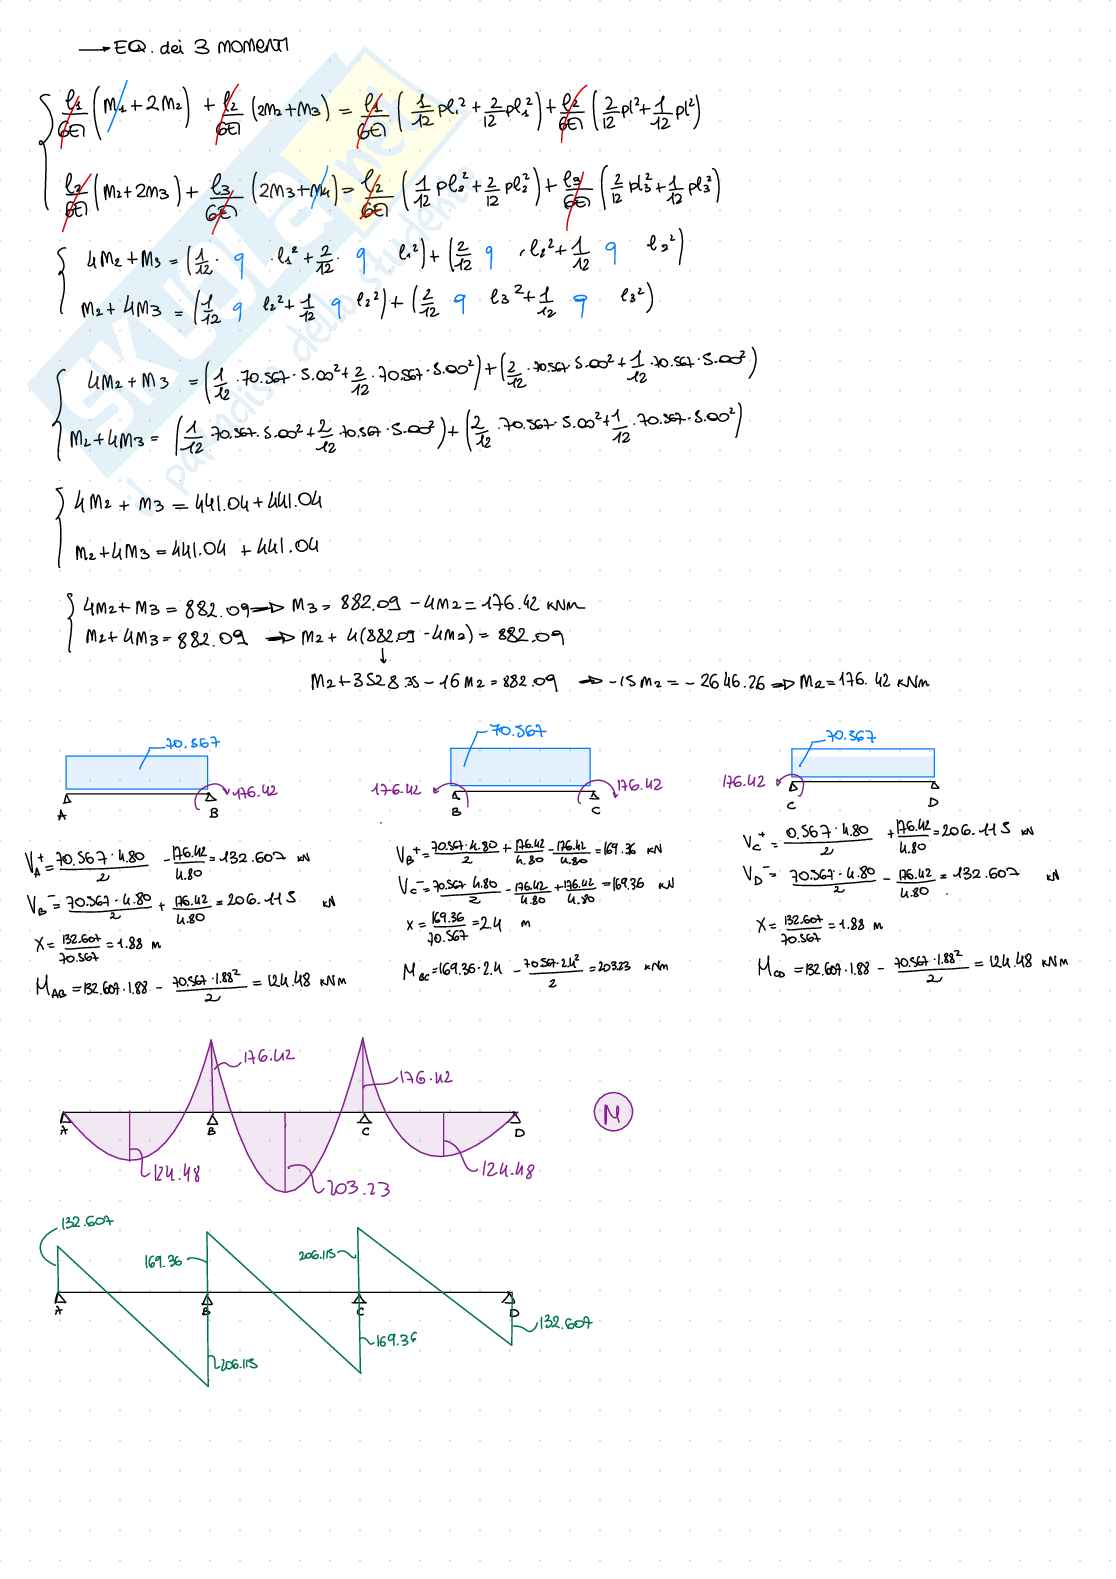 → EQ. dei 3 MOMENTI
l1/6EI (M1 + 2M2) + l2/6EI (2M2 + M3) = l1/6EI (1/12 pl1² + 2/12 pl1²) + l2/6EI (2/12 pl² + 1/12 pl²)
l2/6EI (M2 + 2M3) + l3/6EI (2M3 + M4) = l2/6EI (1/12 pl2² + 2/12 pl2²) + l3/6EI (2/12 pl3² + 1/12 pl3²)
4M2 + M3 = (1/12 · q · l1² + 2/12 · q l1²) + (2/12 q · l2² + 1/12 q l2²)
M2 + 4M3 = (1/12 q l2² + 1/12 q l2²) + (2/12 q l3² + 1/12 q l3²)
4M2 + M3 = (1/12 · 70.567 · 5.00² + 2/12 · 70.567 · 5.00²) + (2/12 · 70.567 · 5.00² + 1/12 · 70.567 · 5.00²)
M2 + 4M3 = (1/12 70.567 · 5.00² + 2/12 70.567 · 5.00²) + (2/12 · 70.567 · 5.00² + 1/12 · 70.567 · 5.00²)
4M2 + M3 = 441.04 + 441.04
M2 + 4M3 = 441.04 + 441.04
4M2 + M3 = 882.09 → M3 = 882.09 - 4M2 = 176.42 kNm
M2 + 4M3 = 882.09 → M2 + 4(882.09 - 4M2) = 882.09
↓
M2 + 3528.35 - 16M2 = 882.09 → -15M2 = -2646.26 → M2 = 176.42 kNm
70.567
176.42
A B
70.567
176.42 176.42
B C
70.567
176.42
C D
VA+ = 70.567 · 4.80/2 - 176.42/4.80 = 132.607 kN
VB- = 70.567 · 4.80/2 + 176.42/4.80 = 206.115 kN
X = 132.607/70.567 = 1.88 m
MAB = 132.607 · 1.88 - 70.567 · 1.88²/2 = 124.48 kNm
VB+ = 70.567 · 4.80/2 + 176.42/4.80 - 176.42/4.80 = 169.36 kN
VC- = 70.567 4.80/2 - 176.42/4.80 + 176.42/4.80 = 169.36 kN
X = 169.36/70.567 = 2.4 m
MBC = 169.36 · 2.4 - 70.567 · 2.4²/2 = 203.23 kNm
VC+ = 0.567 · 4.80/2 + 176.42/4.80 = 206.115 kN
VD- = 70.567 · 4.80/2 - 176.42/4.80 = 132.607 kN
X = 132.607/70.567 = 1.88 m
MCD = 132.607 · 1.88 - 70.567 · 1.88²/2 = 124.48 kNm
176.42
176.42
A B C D
M
124.48
203.23
124.48
132.607
169.36
206.115
A B C D
206.115
169.36
132.607
SKUOLA.net
il paradiso dello studente